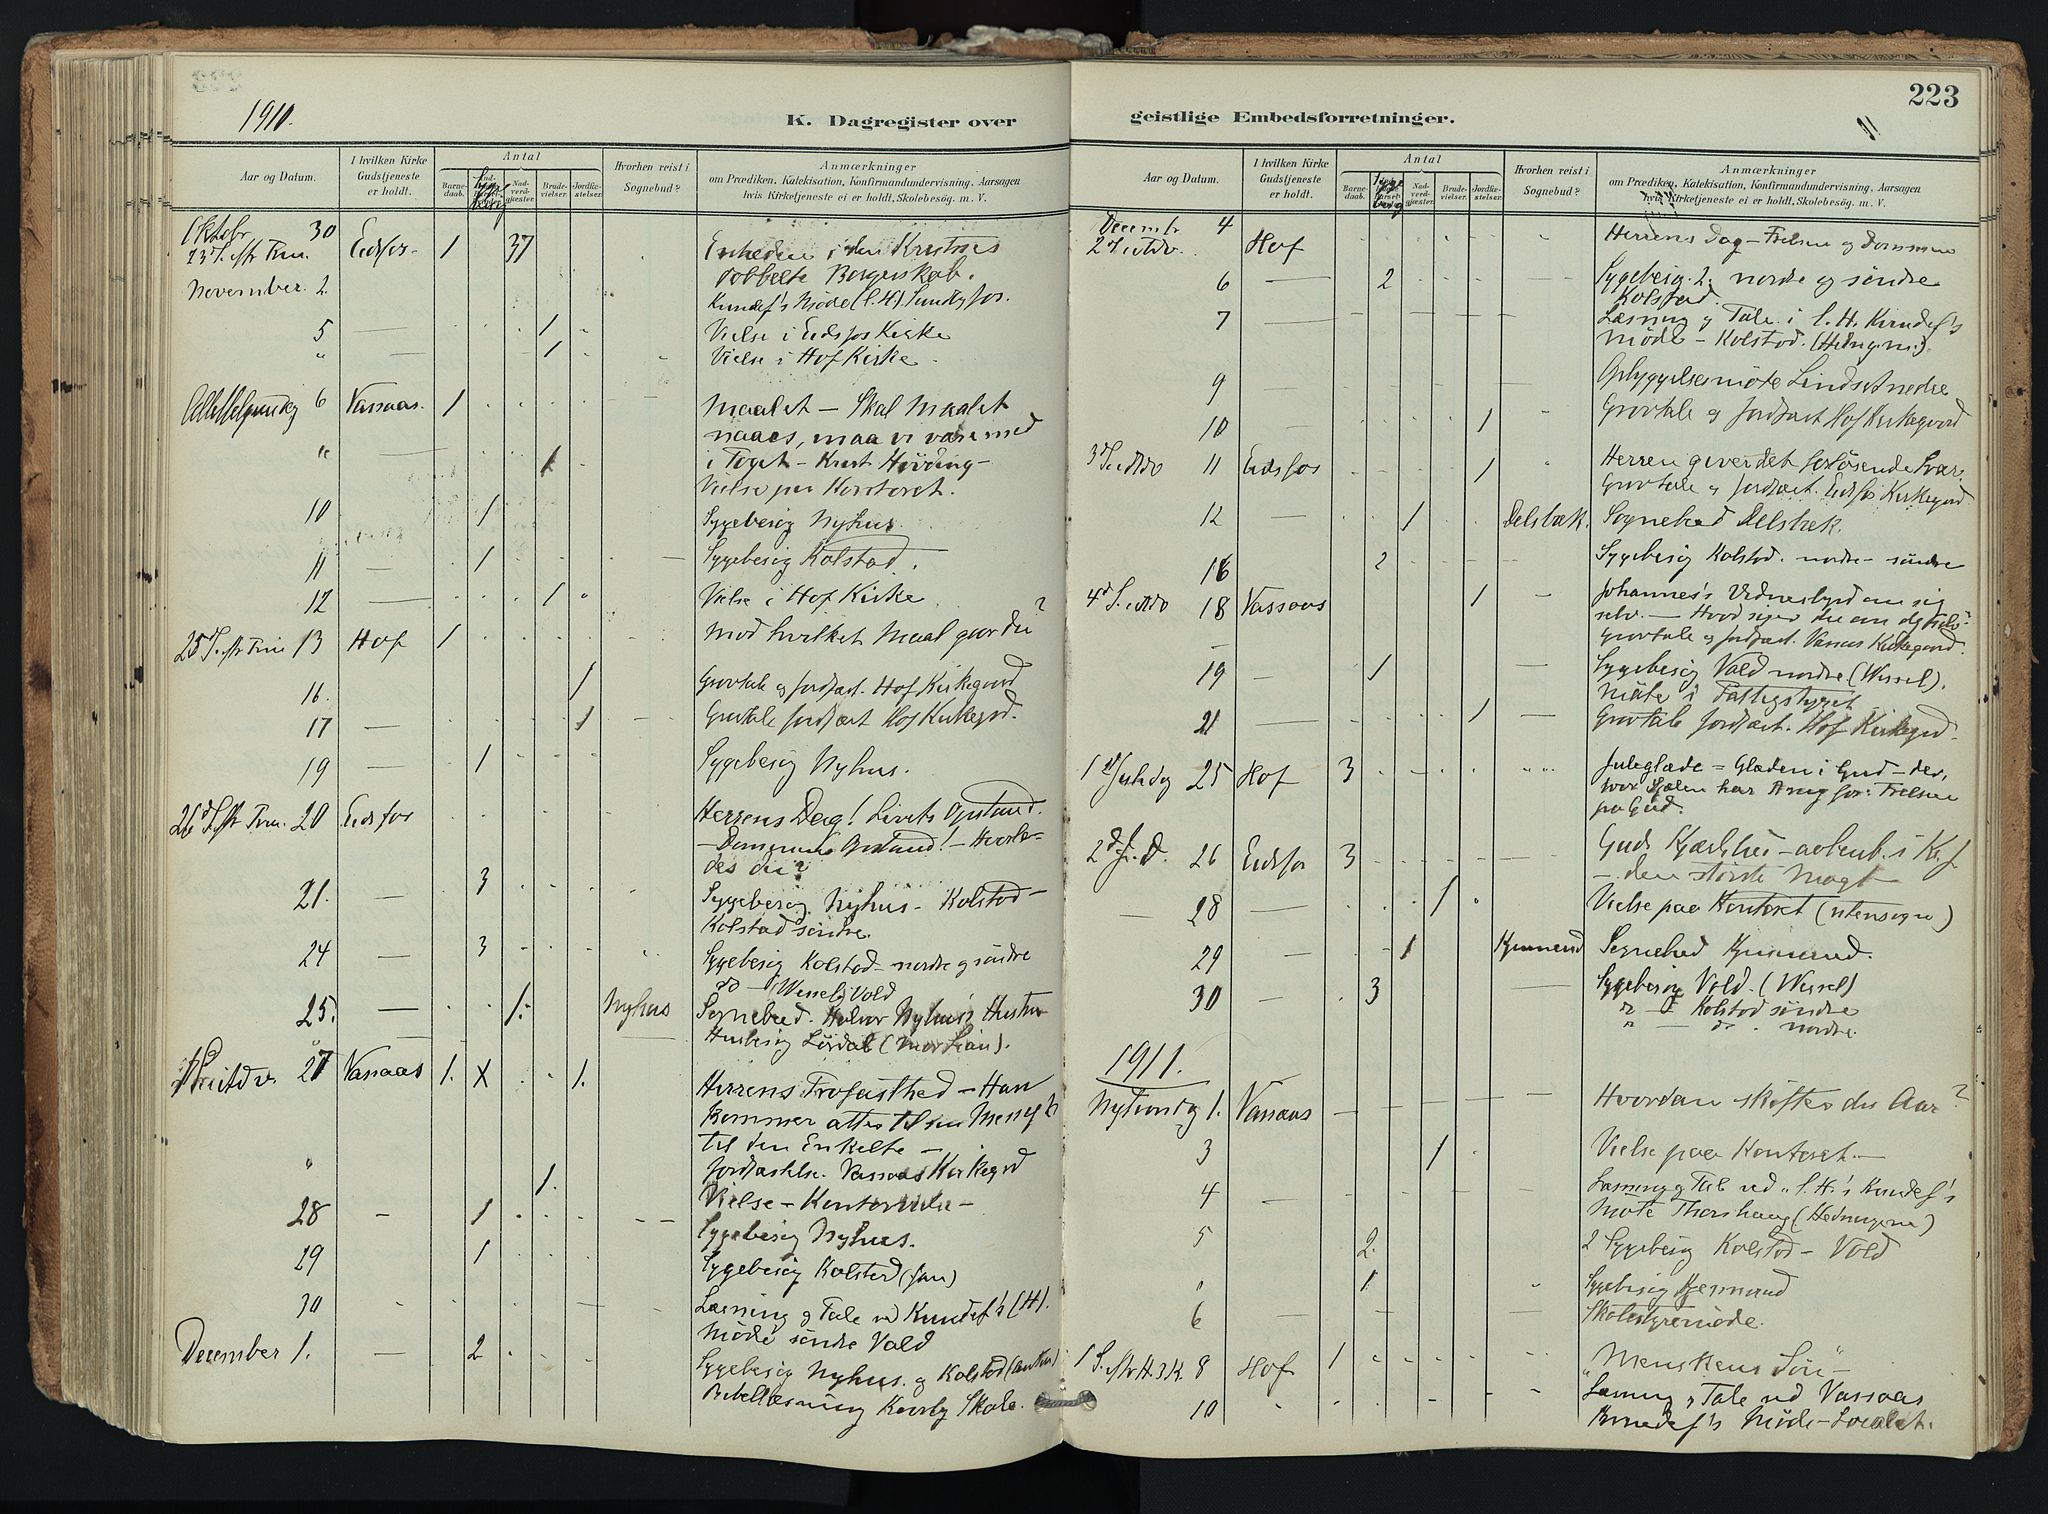 1910.
K. Dagregister over
Aar og Datum.
I hvilken Kirke
Gudstjeneste
er holdt.
Antal
Barne-
daab.
Nad-
verd-
gjæster.
Brude-
vielser.
Jordfæ-
stelser.
Hvorhen reist i
Sognebud?
Anmærkninger
om Prædiken, Katekisation, Konfirmandundervisning, Aarsagen
hvis Kirketjeneste ei er holdt, Skolebesøg. m. V.
Oktobr 30
23d S. eftr Trin. Eidsfos 1 37 Enheden i den Kristnes
dobbelte Borgerskab.
November 2 Kvindef's Møde (I.H) Sundbyfos.
5 — 1 Vielse i Eidsfos Kirke
" — 1 Vielse i Hof Kirke
6 Vassaas. 1 Maalet – Skal Maalet
naaes, maa vi være med
" 1 i Toget – Krist Høvding –
Vielse paa Kontoret.
10 1 Sygebesøg Nyhus
11 — 1 Sygebesøg Kolstad.
12 — 1 Vielse i Hof Kirke
25 S. eftr Trin 13 Hof 1 Mod hvilket Maal gaar du?
16. 1 Gravtale og Jordfæst. Hof Kirkegaard
17 — 1 Gravtale Jordfæst Hof Kirkegrd.
19 — 1 Sygebesøg Nyhus.
26d S. eftr Trin. 20 Eidsfos Herrens Dag! Livets Opstand.
– Dommens Opstand! – Hvorle-
des du?
21. — 3 Sygebesøg Nyhus – Kolstad –
Kolstad søndre.
24 — 3 Sygebesøg Kolstad – nordre og søndre
do – Wessel, Vold
25. — 1 Nyhus Sognebud. Halvor Nyhus's Hustru
Husbesøg Lørdal (Mor Lian).
27 Vassaas 1. x 1. Herrens Trofasthed – Han
kommer atter til sin Menighed
til den Enkelte –
Jordfæstelse. Vassaas Kirkegrd
" 1. Vielse – Kontorvielse –
28 - 1 Sygebesøg Nyhus.
29 1 Sygebesøg Kolstad (Jan)
30 Læsning og Tale ved Kvindef's (H).
Møde søndre Vold
December 1. — 2 Sygebesøg Nyhus og Kolstad
Bibellæsning Skole.
223
geistlige Embedsforretninger.
11
Aar og Datum.
I hvilken Kirke
Gudstjeneste
er holdt.
Antal
Barne-
daab.
Nad-
verd-
gjæster.
Brude-
vielser.
Jordfæ-
stelser.
Hvorhen reist i
Sognebud?
Anmærkninger
om Prædiken, Katekisation, Konfirmandundervisning, Aarsagen
hvis Kirketjeneste ei er holdt, Skolebesøg m. V.
Decembr 4
Hof Herrens Dag – Frelsen og Dommen
6 — 2 Sygebesøg 2. nordre og søndre
Kolstad.
7 — Læsning og Tale i I. H. Kvindef's
Møde – Kolstad.
9 — Opbyggelsesmøte Lindset nedre
10 — 1 Gravtale og Jordfæst Hof Kirkegaard
11 Eidsfos 1 Herren giver det forløsende Svar.
Gravtale og Jordfæst. Eidsfos Kirkegrd
12 — 1 Delsbæk. Sognebud Delsbæk.
16 2 Sygebesøg Kolstad. nordre – søndre
18 Vassaas 1 Johannes's Vidnesbyrd om sig
selv. – Hvad siger du om dig selv
Gravtale og Jordfæst. Vassaas Kirkegaard.
19 — 1 Sygebesøg Vold nordre (Wessel).
Møte i Fattigstyret
21 — 1 Gravtale Jordfæst. Hof Kirkegrd.
1d Juledag 25 Hof 3 Juleglæde = Glæden i Gud – der,
hvor Sjælen har Brug for: Frelsen
paa Gud.
26 Eidsfos 3 Guds Kjærlihed – aabenb. i Kr.
– den største Magt
28 — 1 Vielse paa Kontoret (utensogns)
29 — 1 Sognebud
30 — 3 Sygebesøg Vold. (Wessel)
" – Kolstad søndre
" — do. nordre.
1911.
Nytaarsdag 1. Vassaas Hvordan skiftes du Aar?
3 1 Vielse paa Kontoret. –
4 — Læsning og Tale ved "I. H.'s Kvindef's
Møte Thorshaug
5 2. 2 Sygebesøg Kolstad – Vold
" 1 Sygebesøg
6 — Skolestyremøde.
1 S. eftr H.3K. 8 Hof 1 "Menskens Søn" –
10 Læsning og Tale ved Vassaas
Kvindef's Møde – Localet.